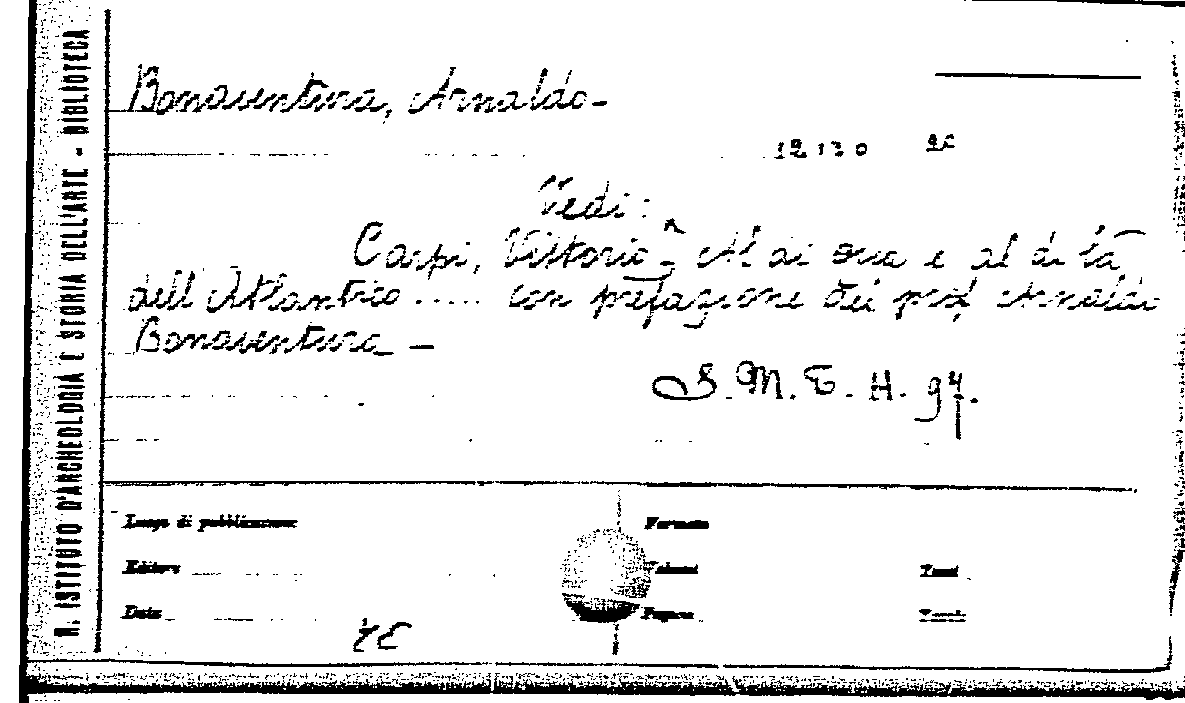 R. ISTITUTO D'ARCHEOLOGIA E STORIA DELL'ARTE - BIBLIOTECA
Bonaventura, Arnaldo-
12130
Vedi:
Carpi, Vittorio - Al di qua e al di là
dell'Atlantico ..... con prefazione del prof Arnaldo
Bonaventura -
S. M. E. H. 97.
Luogo di pubblicazione
Formato
Editore
Volumi
Tomi
Data
Pagine
Tavole